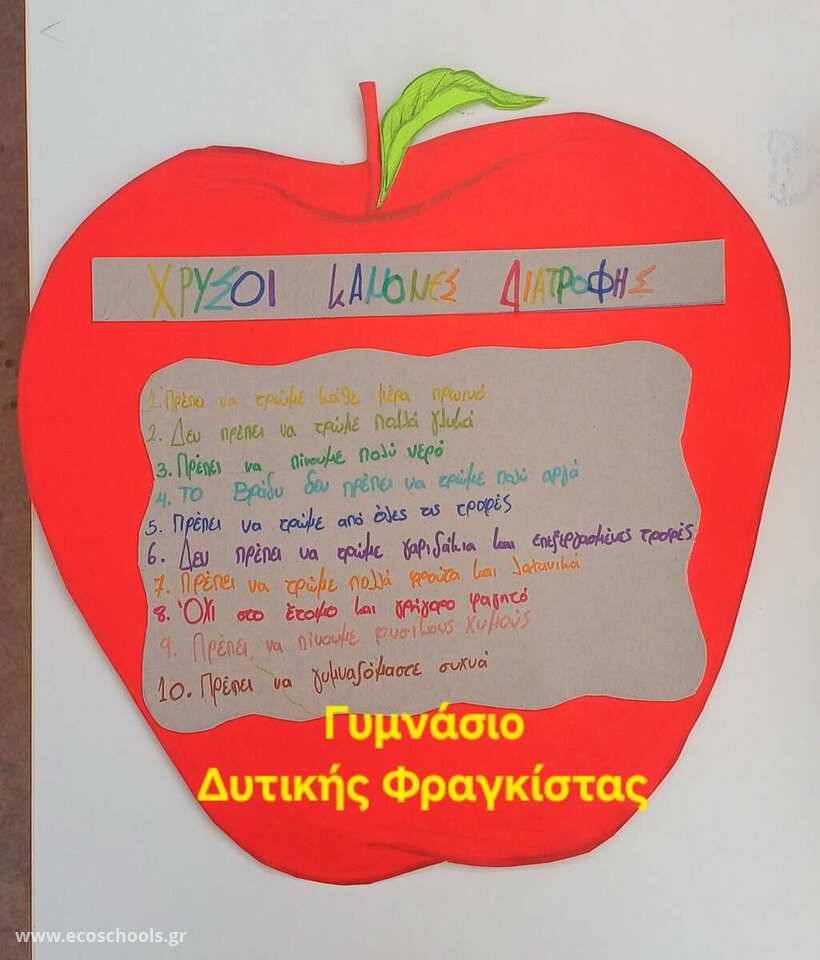 ΧΡΥΣΟΙ ΚΑΝΟΝΕΣ ΔΙΑΤΡΟΦΗΣ
1. Πρέπει να τρώμε κάθε μέρα πρωινό
2. Δεν πρέπει να τρώμε πολλά γλυκά
3. Πρέπει να πίνουμε πολύ νερό
4. ΤΟ Βράδυ δεν πρέπει να τρώμε πολύ αργά
5. Πρέπει να τρώμε από όλες τις τροφές
6. Δεν πρέπει να τρώμε γαριδάκια και επεξεργασμένες τροφές
7. Πρέπει να τρώμε πολλά φρούτα και λαχανικά
8. ΌΧΙ στο έτοιμο και γρήγορο φαγητό
9. Πρέπει να πίνουμε φυσικούς χυμούς
10. Πρέπει να γυμναζόμαστε συχνά
Γυμνάσιο
Δυτικής Φραγκίστας
www.ecoschools.gr